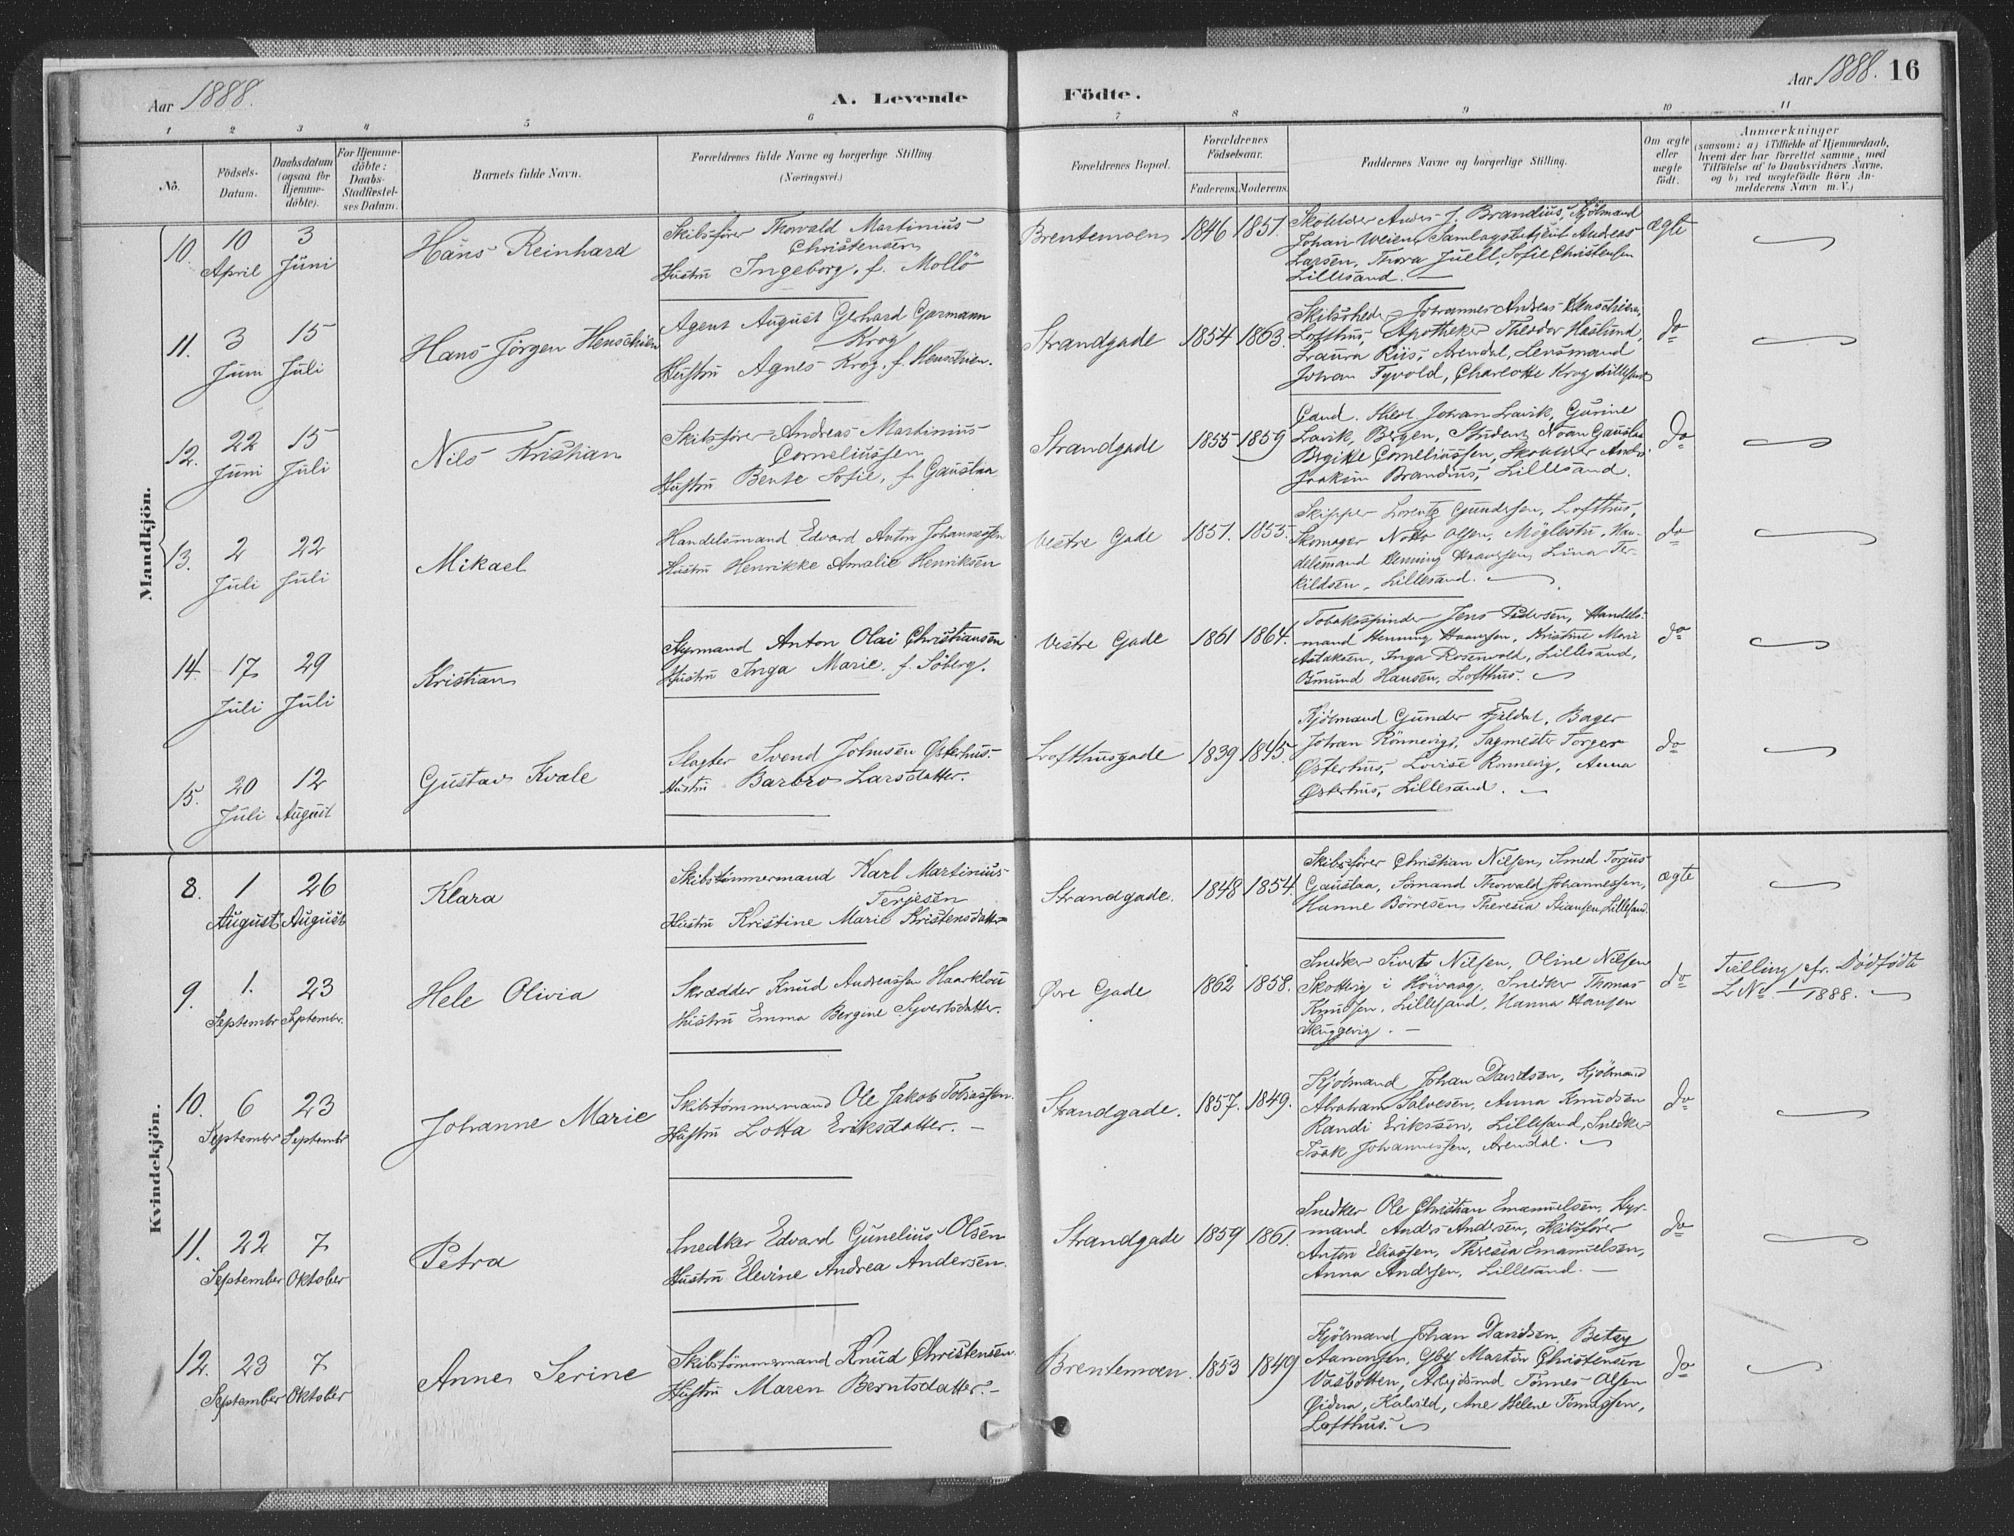 Aar 1888.
A. Levende
Födte.
Aar 1888. 16
1 2 3 4 5 6 7 8 9 10 11
No.
Födsels-
Datum.
Daabsdatum
(ogsaa for
Hjemme-
döbte).
For Hjemme-
döbte:
Daabs-
Stadfæstel-
ses Datum.
Barnets fulde Navn.
Forældrenes fulde Navne og borgerlige Stilling
(Næringsvei.)
Forældrenes Bopæl.
Forældrenes
Födselsaar.
Faderens. Moderens.
Faddernes Navne og borgerlige Stilling.
Om ægte
eller
uægte
födt.
Anmærkninger
(saasom: a) i Tilfælde af Hjemmedaab,
hvem der har forrettet samme, med
Tilföielse af to Daabsvidners Navne,
og b) ved uægtefödte Börn An-
melderens Navn m. V.)
Mandkjön.
10.
10
April
3
Juni
Hans Reinhard
Skibsfører Thorvald Martinius
Christensen
Hustru Ingeborg, f. Mollö
Brentemoen
1846 1851.
Skoleldr Anders J. Brandius, Kjöbmand
Johan Weien, Samlagsbetjent Andreas
Larsen, Thora Juell, Sofie Christensen
Lillesand.
ægte
11.
3
Juni
15
Juli
Hans Jörgen Henschien
Agent August Gerhard Garmann
Krog
Hustru Agnes Krog, f. Henschien.
Strandgade
1854 1863.
Skibsrheder Johannes Andreas Henschien,
Lofthus, Apotheker Theodor Haslund,
Laura Riis, Arendal, Lensmand
Johan Tyvold, Charlotte Krog Lillesand
do
12.
22
Juni
15
Juli
Nils Kristian
Skibsfører Andreas Martinius
Corneliussen
Hustru Bente Sofie, f. Gaustaa
Strandgade
1855 1859
Cand. theol Johan Lavik, Gurine
Lavik, Bergen, Student Noan Gaustaa
Birgitte Corneliussen, Skoleldr Andrs
Joakim Brandius, Lillesand.
do
13.
2
Juli
22
Juli
Mikael
Handelsmand Edvard Anton Johannessen
Hustru Henrikke Amalie Henriksen
Vestre Gade
1851. 1855.
Skipper Lorentz Gundersen, Lofthus,
Skomager Notto Olsen, Möglestu, Han-
delsmand Henning Haansen, Lina Ter-
kildsen, Lillesand.
do
14.
17
Juli
29
Juli
Kristian
Styrmand Anton Olai Christiansen
Hustru Inga Marie, f. Söberg.
Vestre Gade
1861 1864.
Tobakspinder Jens Pedersen, Handels-
mand Henning Haansen, Kristine Marie
Aslaksen, Inga Rosenvold, Lillesand,
Osmund Hansen, Lofthus.
do
15.
20
Juli
12
August
Gustav Kvale
Slagter Svend Johnsen Østerhus.
Hustru Barbro Larsdatter.
Lofthusgade
1839 1845.
Kjöbmand Gunder Fjeldal, Bager
Johan Rönnevig, Sagmester Torger
Østerhus, Lovise Rönnevig, Anna
Østerhus, Lillesand.
do
Kvindekjön.
8.
1
August
26
August
Klara
Skibstømmermand Karl Martinius
Terjesen
Hustru Kristine Marie Kristensdatter
Strandgade.
1848 1854.
Skibsfører Christian Nilsen, Smed Torjus
Gaustaa, Sömand Thorvald Johannessen,
Hanne Börresen, Theresia Stiansen, Lillesand.
ægte
9.
1.
Septembr
23
Septembr.
Hele Olivia
Skrædder Knud Andreassen Haarklou
Hustru Emma Bergine Syvertsdatter.
Øvre Gade
1862 1858.
Snedker Sivert Nilsen, Oline Nilsen
Skottevig i Höivaag, Snedker Thomas
Knudsen, Lillesand, Hanna Hansen
Skuggevig.
do
Tvilling cfr. Dödfödte
L No 1/1888.
10.
6
Septembr
23
Septembr
Johanne Marie
Skibstømmermand Ole Jakob Tobiassen.
Hustru Lotta Eriksdatter.
Strandgade.
1857. 1849.
Kjöbmand Johan Davidsen, Kjöbmand
Abraham Salvesen, Anna Knudsen
Randi Erikssen, Lillesand, Snedker
Isak Johannessen, Arendal.
do
11.
22
September
7
Oktober
Petra
Snedker Edvard Gunelius Olsen
Hustru Elevine Andrea Andersen.
Strandgade
1859 1861.
Snedker Ole Christian Emanuelsen, Styr-
mand Anders Andersen, Skibsfører
Anton Eliassen, Theresia Emanuelsen,
Anna Andersen, Lillesand.
do
12.
23
September
7
Oktober
Anne Serine
Skibstømmermand Knud Christensen
Hustru Maren Berntsdatter.
Brentemoen.
1853 1849
Kjöbmand Johan Davidsen, Betzy
Aanonsen, Martin Christensen
Vasbotten, Arbejdsmd Tönnes Olsen
Kalvild, Ane Helene Tönnesen,
Lofthus.
do